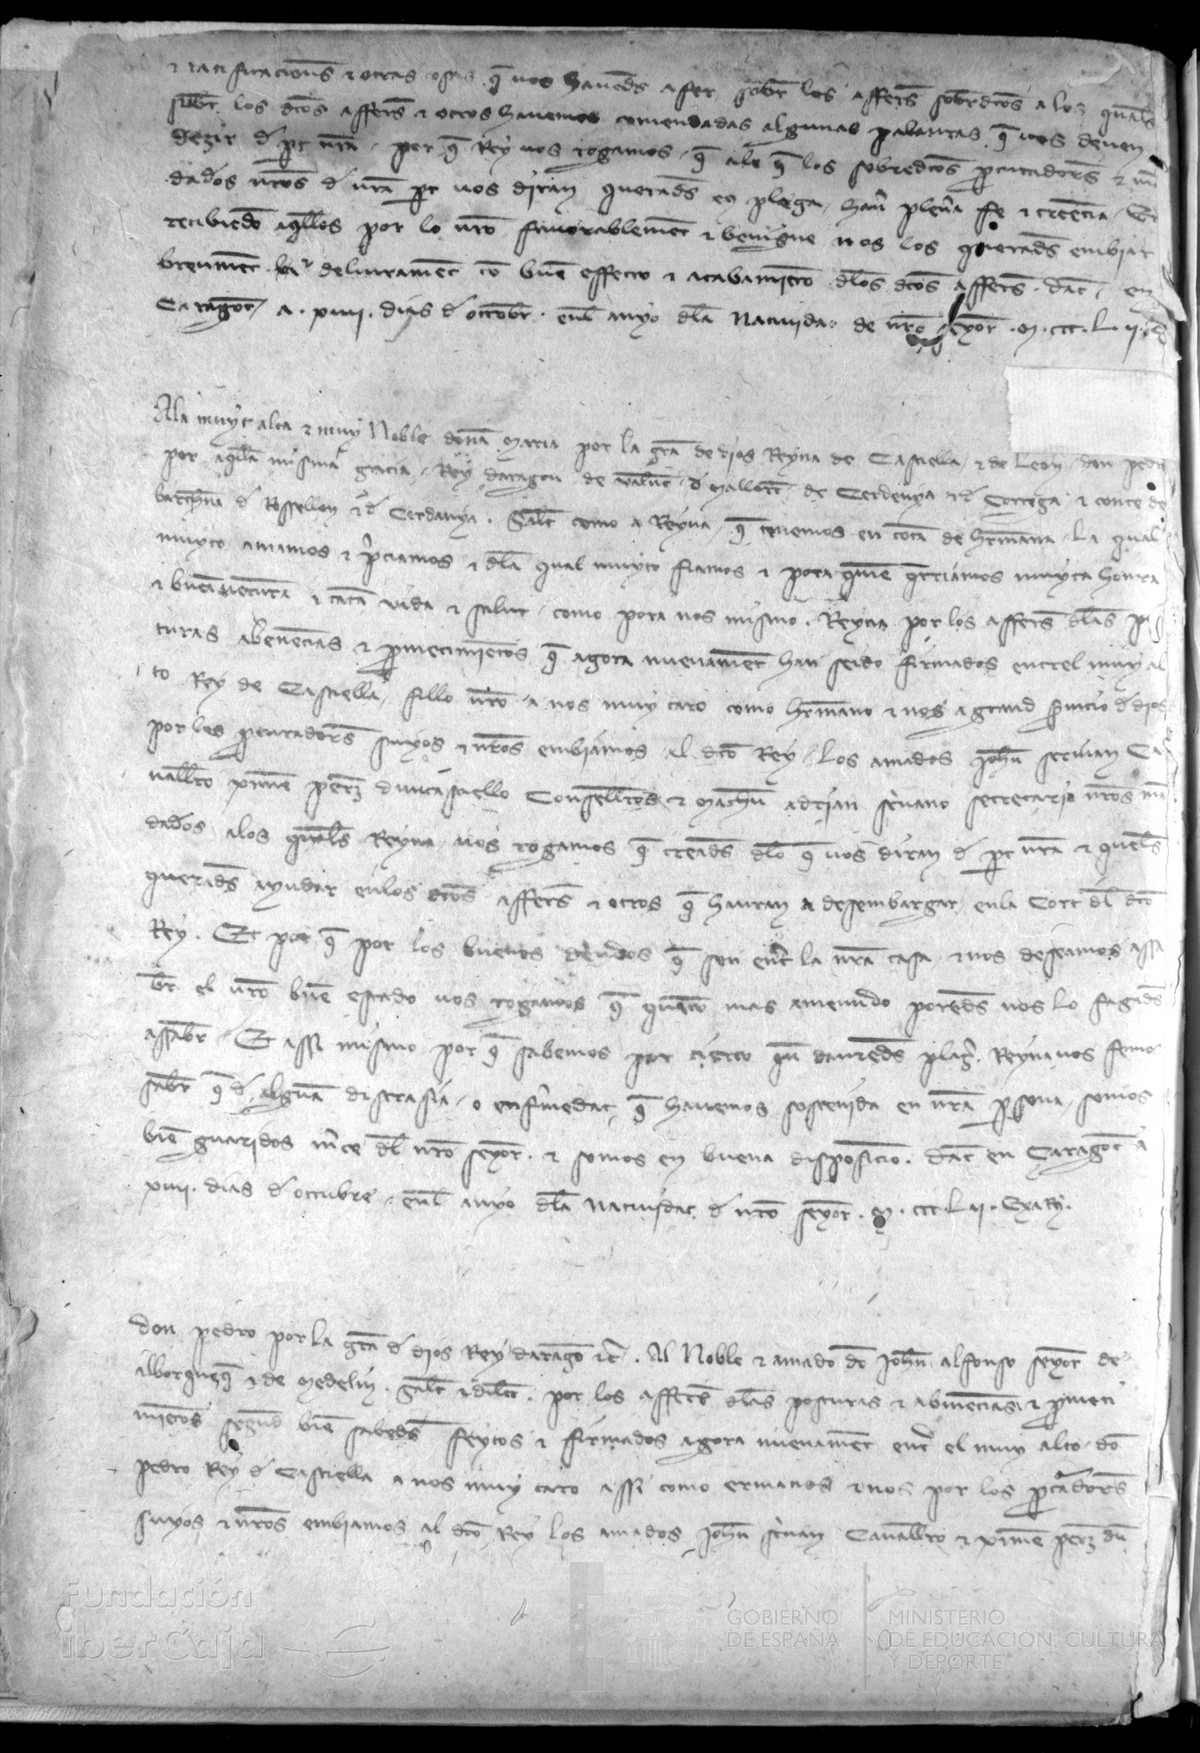 & ratificacions & otras cosas q̅ nos haueds a fer sobr los affers sobrdcos a los quals
sobr los dcos affers & otros hauemos comendadas algunas palauras q̅ vos deuen
dezir d p̱t nr̅a per q̅ Rey vos rogamos q̅ a los sobredcos p̱curadors & m̅
dados nr̅os d nr̅a p̱t vos diran querads en plega han̅ plen̅a fe & creencia Et
recibiedo aq̅llos por lo nr̅o fauorablement & benigne nos los querads embiar
breument deliurament co bue̅ effecto & acabamiento dlos dcos affers dat en
Caragoc̅ a xviii dias d octobr enl anyo dla Natiuidat de nr̅o seyor M ccc L ii
Ala muyt alta & muy Noble dona Maria por la gr̅a de dios Reyna de Castiella & de Leon don pedro
por aq̅lla misma gracia Rey daragon de valenc̅ d Mallorc̅ de Cerdenya & d Corcega & conte de
barch̅na d Rossellon & d Cerdanya Salut como a Reyna q̅ tenemos en conta de hr̅mana la qual
muyto amamos & p̱ciamos & dla qual muyto fiamos & pora quie̅ q̅rriamos muyta honra
& buenauentura & tanta vida & salut como pora nos mismo Reyna por los affers dlas pos
turas abenencias & p̱metimientos q̅ agora nueuament han seido firmados entrel muy al
to Rey de Castiella fillo vr̅o a nos muy caro como hr̅mano & nos a grand s̱uicio d dios
por los p̱curadors suyos & nr̅os embiamos al dco Rey los amados Joh̅n scriuan Ca
uall̅ro Ximen perez dunacastiello Consell̅ros & Mach̅u adrian sc̅uano secretario nr̅os m̅a
dados a los quals Reyna vos rogamos q̅ creads dlo q̅ vos diran d p̱t nr̅a & quels
querads ayudar en los dcos affers & otros q̅ hauran a desembargar en la Cort dl dco
Rey Et por q̅ por los buenos deudos q̅ son ent̅ la nr̅a casa & nos deseamos assa
br el vr̅o bue̅ estado vos rogamos q̅ quanto mas amenudo poreds nos lo fagads
assabr Et assi mismo por q̅ sabemos por cierto q̅n̅ daureds plaz̅ Reyna vos femos
sabr q̅ d alguna discrasia o enfermedat q̅ hauemos sostenida en nr̅a p̱sona somos
bie̅ guaridos m̅ce dl nr̅o seyor & somos en buena disposicio Dat en Caragoc̅ a
xviii dias d octubre enl anyo dla Natiuidat d nr̅o seyor M ccc L ii
don pedro por la gr̅a d dios Rey darago &c̅ Al Noble & amado do̅ Joh̅n alfonso seyor de
alborquerq̅ & de Medelin salt & dilec̅ por los affers dlas posturas & abinencias & p̱meti
mientos segund bie̅ sabeds feytos & firmados agora nueuament entr̅ el muy alto do̅
pedro Rey d Castiella a nos muy caro assi como ermano & nos por los p̱curadors
suyos & nr̅os embiamos al dco Rey los amados Joh̅n sc̅uan Cauall̅ro & Ximen perez du̅
Fundación
iberCaja
GOBIERNO
DE ESPAÑA
MINISTERIO
DE EDUCACIÓN, CULTURA
Y DEPORTE